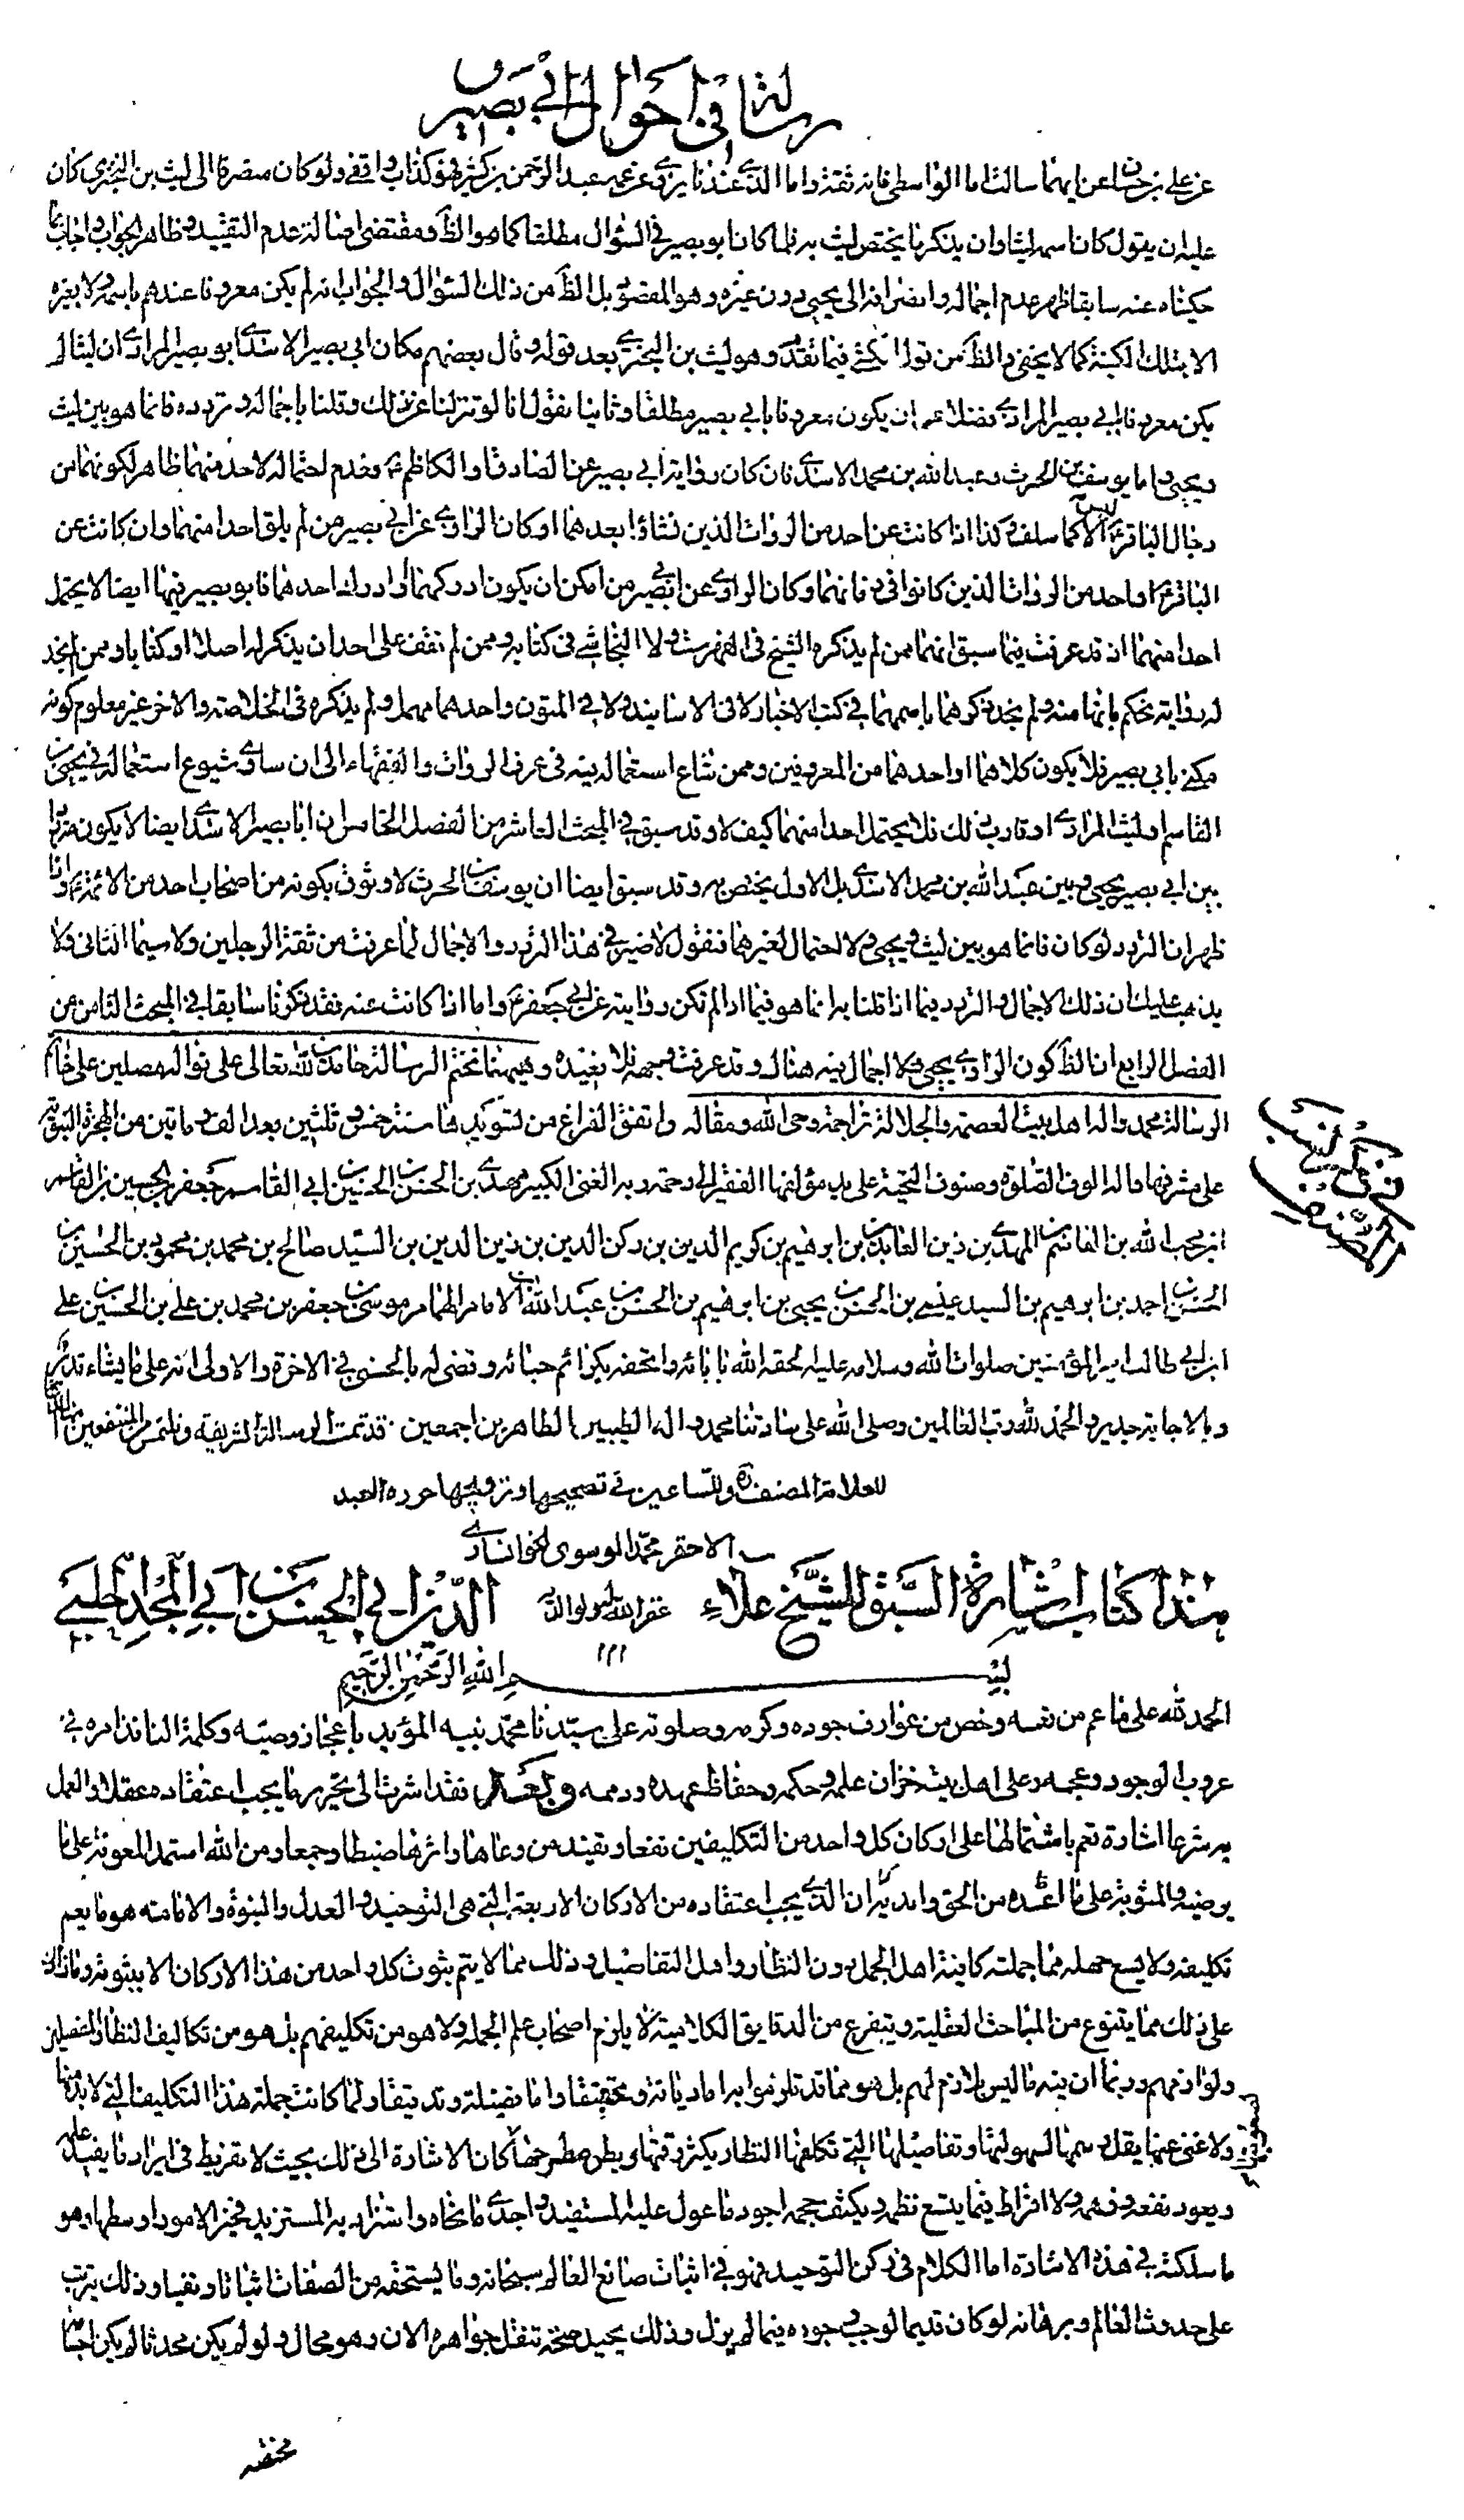 رسالة في احوال ابي بصير
عن علي بن حسان عن ايهما سالت اما الواسطي فانه ثقة واما الذي عندنا يروي عن عمه عبد الرحمن بن كثير فهو كذاب واقفي ولو كان منصرفا الى ليث بن البختري كان
عليه ان يقول كان اسمه ليثا وان يذكر ما يختص ليث به فلما كان ابو بصير في السؤال مطلقا كما هو الظ ومقتضى اصالة عدم التقييد وظاهر الجواب واجاب بما
حكيناه عنه سابقا ظهر عدم اجماله وانصرافه الى يحيى دون غيره وهو المقصود بل الظ من ذلك السؤال والجواب انه لم يكن معروفا عندهم باسمه ولا بغيره
الا بتلك الكنية كما لا يخفى والظ من قول الكشي فيما تقدم وهو ليث بن البختري بعد قوله وقال بعضهم مكان ابي بصير الاسدي ابو بصير المرادي ان ليثا لم
يكن معروفا بابي بصير المرادي فضلا عن ان يكون معروفا بابي بصير مطلقا وثانيا نقول انا لو تنزلنا عن ذلك وقلنا باجماله وتردده فانما هو بين ليث
ويحيى واما يوسف بن الحرث وعبد الله بن محمد الاسدي فان كان رواية ابي بصير عن الصادق او الكاظم ع فعدم احتماله لاحد منهما ظاهر لكونهما من
رجال الباقر ع ليس الا كما سلف وكذا اذا كانت عن احد من الرواة الذين نشاوا بعدهما او كان الراوي عن ابي بصير من لم يلق احدا منهما وان كانت عن
الباقر ع او احد من الرواة الذين كانوا في زمانهما وكان الراوي عن ابي بصير من امكن ان يكون ادركهما او ادرك احدهما فابو بصير فيها ايضا لا يحتمل
احدا منهما اذ قد عرفت فيما سبق انهما ممن لم يذكره الشيخ في الفهرست ولا النجاشي في كتابه وممن لم نقف على احد ان يذكر له اصلا او كتابا وممن لم نجد
له رواية نحكم بانها منه ولم نجد ذكرهما باسمهما في كتب الاخبار لا في الاسانيد ولا في المتون واحدهما مهمل ولم يذكره في الخلاصة والاخر غير معلوم كونه
مكنى بابي بصير فلا يكون كلاهما او احدهما من المعروفين وممن شاع استعماله فيه في عرف الرواة والفقهاء الى ان ساوى شيوع استعماله في يحيى بن
القاسم او ليث المرادي او قارب ذلك فلا يحتمل احدا منهما كيف لا وقد سبق في المبحث العاشر من الفصل الخامس ان ابا بصير الاسدي ايضا لا يكون مشتركا
بين ابي بصير يحيى وبين عبد الله بن محمد الاسدي بل الاول يختص به وقد سبق ايضا ان يوسف بن الحرث لا وثوق بكونه من اصحاب احد من الائمة ع واذا
ظهر ان التردد لو كان فانما هو بين ليث ويحيى ولا احتمال لغيرهما فنقول لا ضير في هذا التردد والاجمال لما عرفت من ثقة الرجلين ولا سيما الثاني ولا
يذهب عليك ان ذلك الاجمال والتردد فيما اذا قلنا به انما هو فيما اذا لم تكن رواية عن ابي جعفر ع واما اذا كانت عنه فقد ذكرنا سابقا في المبحث الثامن من
الفصل الرابع ان الظ كون الراوي يحيى فلا اجمال فيه هناك وقد عرفت وجهه فلا نعيده وههنا نختم الرسالة حامدين لله تعالى على نواله مصلين على خاتم
الرسالة محمد واله اهل بيت العصمة والجلالة تراجمة وحي الله ومقاله واتفق الفراغ من تسويدها سنة خمس وثلثين بعد الف وماتين من الهجرة النبوية
على مشرفها واله الوف الصلوة وصنوف التحية على يد مؤلفها الفقير الى رحمة ربه الغني الكبير مهدي بن الحسن بن الحسين بن ابي القاسم جعفر بن الحسين بن القاسم
ابن محب الله بن القاسم بن المهدي بن زين العابدين بن ابرهيم بن كريم الدين بن ركن الدين بن زين الدين بن السيد صالح بن محمد بن محمود بن الحسين بن
الحسن بن احمد بن ابرهيم بن السيد عيسى بن الحسن بن يحيى بن ابرهيم بن الحسن بن عبد الله بن الامام الهمام موسى بن جعفر بن محمد بن علي بن الحسين بن علي
ابن ابي طالب امير المؤمنين صلوات الله وسلامه عليه الحقه الله بابائه واتحفه بكرائم حبائه وقضى له بالحسنى في الاخرة والاولى انه على ما يشاء قدير
وبالاجابة جدير والحمد لله رب العالمين وصلى الله على سادتنا محمد واله الطيبين الطاهرين اجمعين قد تمت الرسالة الشريفة ونلتمس من المنتفعين منها الدعاء
للعلامة المصنف ره وللساعين في تصحيحها وترويجها حرره العبد
الاحقر محمد الموسوي الخوانساري
في ذكر نسب المصنف
هذا كتاب اشارة السبق للشيخ علاء الدين ابي الحسن بن ابي المجد الحلبي
غفر الله له ولوالديه
بسم الله الرحمن الرحيم
الحمد لله على ما عم من نعمه وخص من عوارف جوده وكرمه وصلوته على سيدنا محمد نبيه المؤيد باعجاز وصيه وكلمة النافذ امره في
عرب الوجود وعجمه وعلى اهل بيته خزان علمه وحكمه وحفاظ عهده وذممه وبعد فقد اشرت الى تحرير ما يجب اعتقاده عقلا والعمل
به شرعا اشارة تعم باشتمالها على اركان كل واحد من التكليفين نفعا وتفيد من وعاها واثرها ضبطا وجمعا ومن الله استمد المعونة على ما
يرضيه والمثوبة على ما اعتمده من الحق وابديه ان الذي يجب اعتقاده من الاركان الاربعة التي هي التوحيد والعدل والنبوة والامامة هو ما يعم
تكليفه ولا يسع جهله مما جملته كافية اهل الجمل دون النظار واهل التفاصيل وذلك مما لا يتم ثبوت كل واحد من هذا الاركان الا بثبوته وما زاد
على ذلك مما يتنوع من المباحث العقلية ويتفرع من الدقايق الكلامية لا يلزم اصحاب علم الجملة ولا هو من تكليفهم بل هو من تكاليف النظار المفصلين
ولوازمهم وربما ان فيه ما ليس بلازم لهم بل هو مما قد تلزموا به اما ديانة وتحققا واما فضيلة وتدقيقا ولما كانت جملة هذا التكليف التي لا بد منها
ولا غنى عنها يقل رسمها لسهولتها وتفاصيلها التي تكلفها النظار يكثر وقتها ويطول مطرحها كان الاشارة الى ذلك بحيث لا تفريط في ايراد ما يفيد علمه
ويعود نفعه وفهمه ولا افراط فيما يتسع نظمه ويكثف حجمه اجود ما عول عليه المستفيد واجدى ما نحاه واشار به المستزيد فخير الامور اوسطها وهو
ما سلكته في هذه الاشارة اما الكلام في ركن التوحيد فهو في اثبات صانع العالم سبحانه وما يستحقه من الصفات اثباتا ونفيا وذلك يترتب
على حدوث العالم وبرهانه لو كان قديما لوجب وجوده فيما لم يزل وذلك يحيد صحة تنقل جواهره الان وهو محال ولو لم يكن محدثا لم يكن اجساما